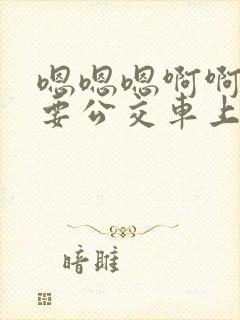 嗯嗯嗯啊啊
要公交車上
暗雎